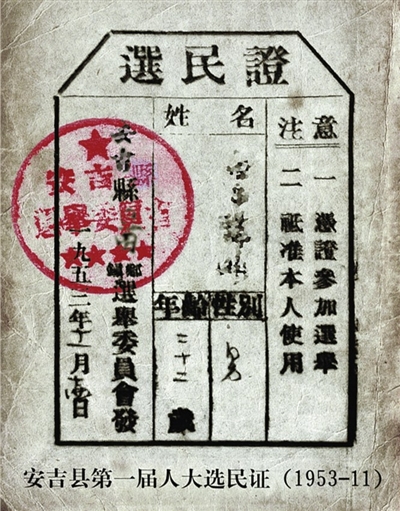 選民證
注意
一 憑證參加選舉
二 祗准本人使用
姓名
年齡
性別
男
二十二歲
安吉縣
鄉鎮選舉委員會發
一九五三年十一月十
日
安吉縣
選舉委員會
安吉县第一届人大选民证（1953-11）